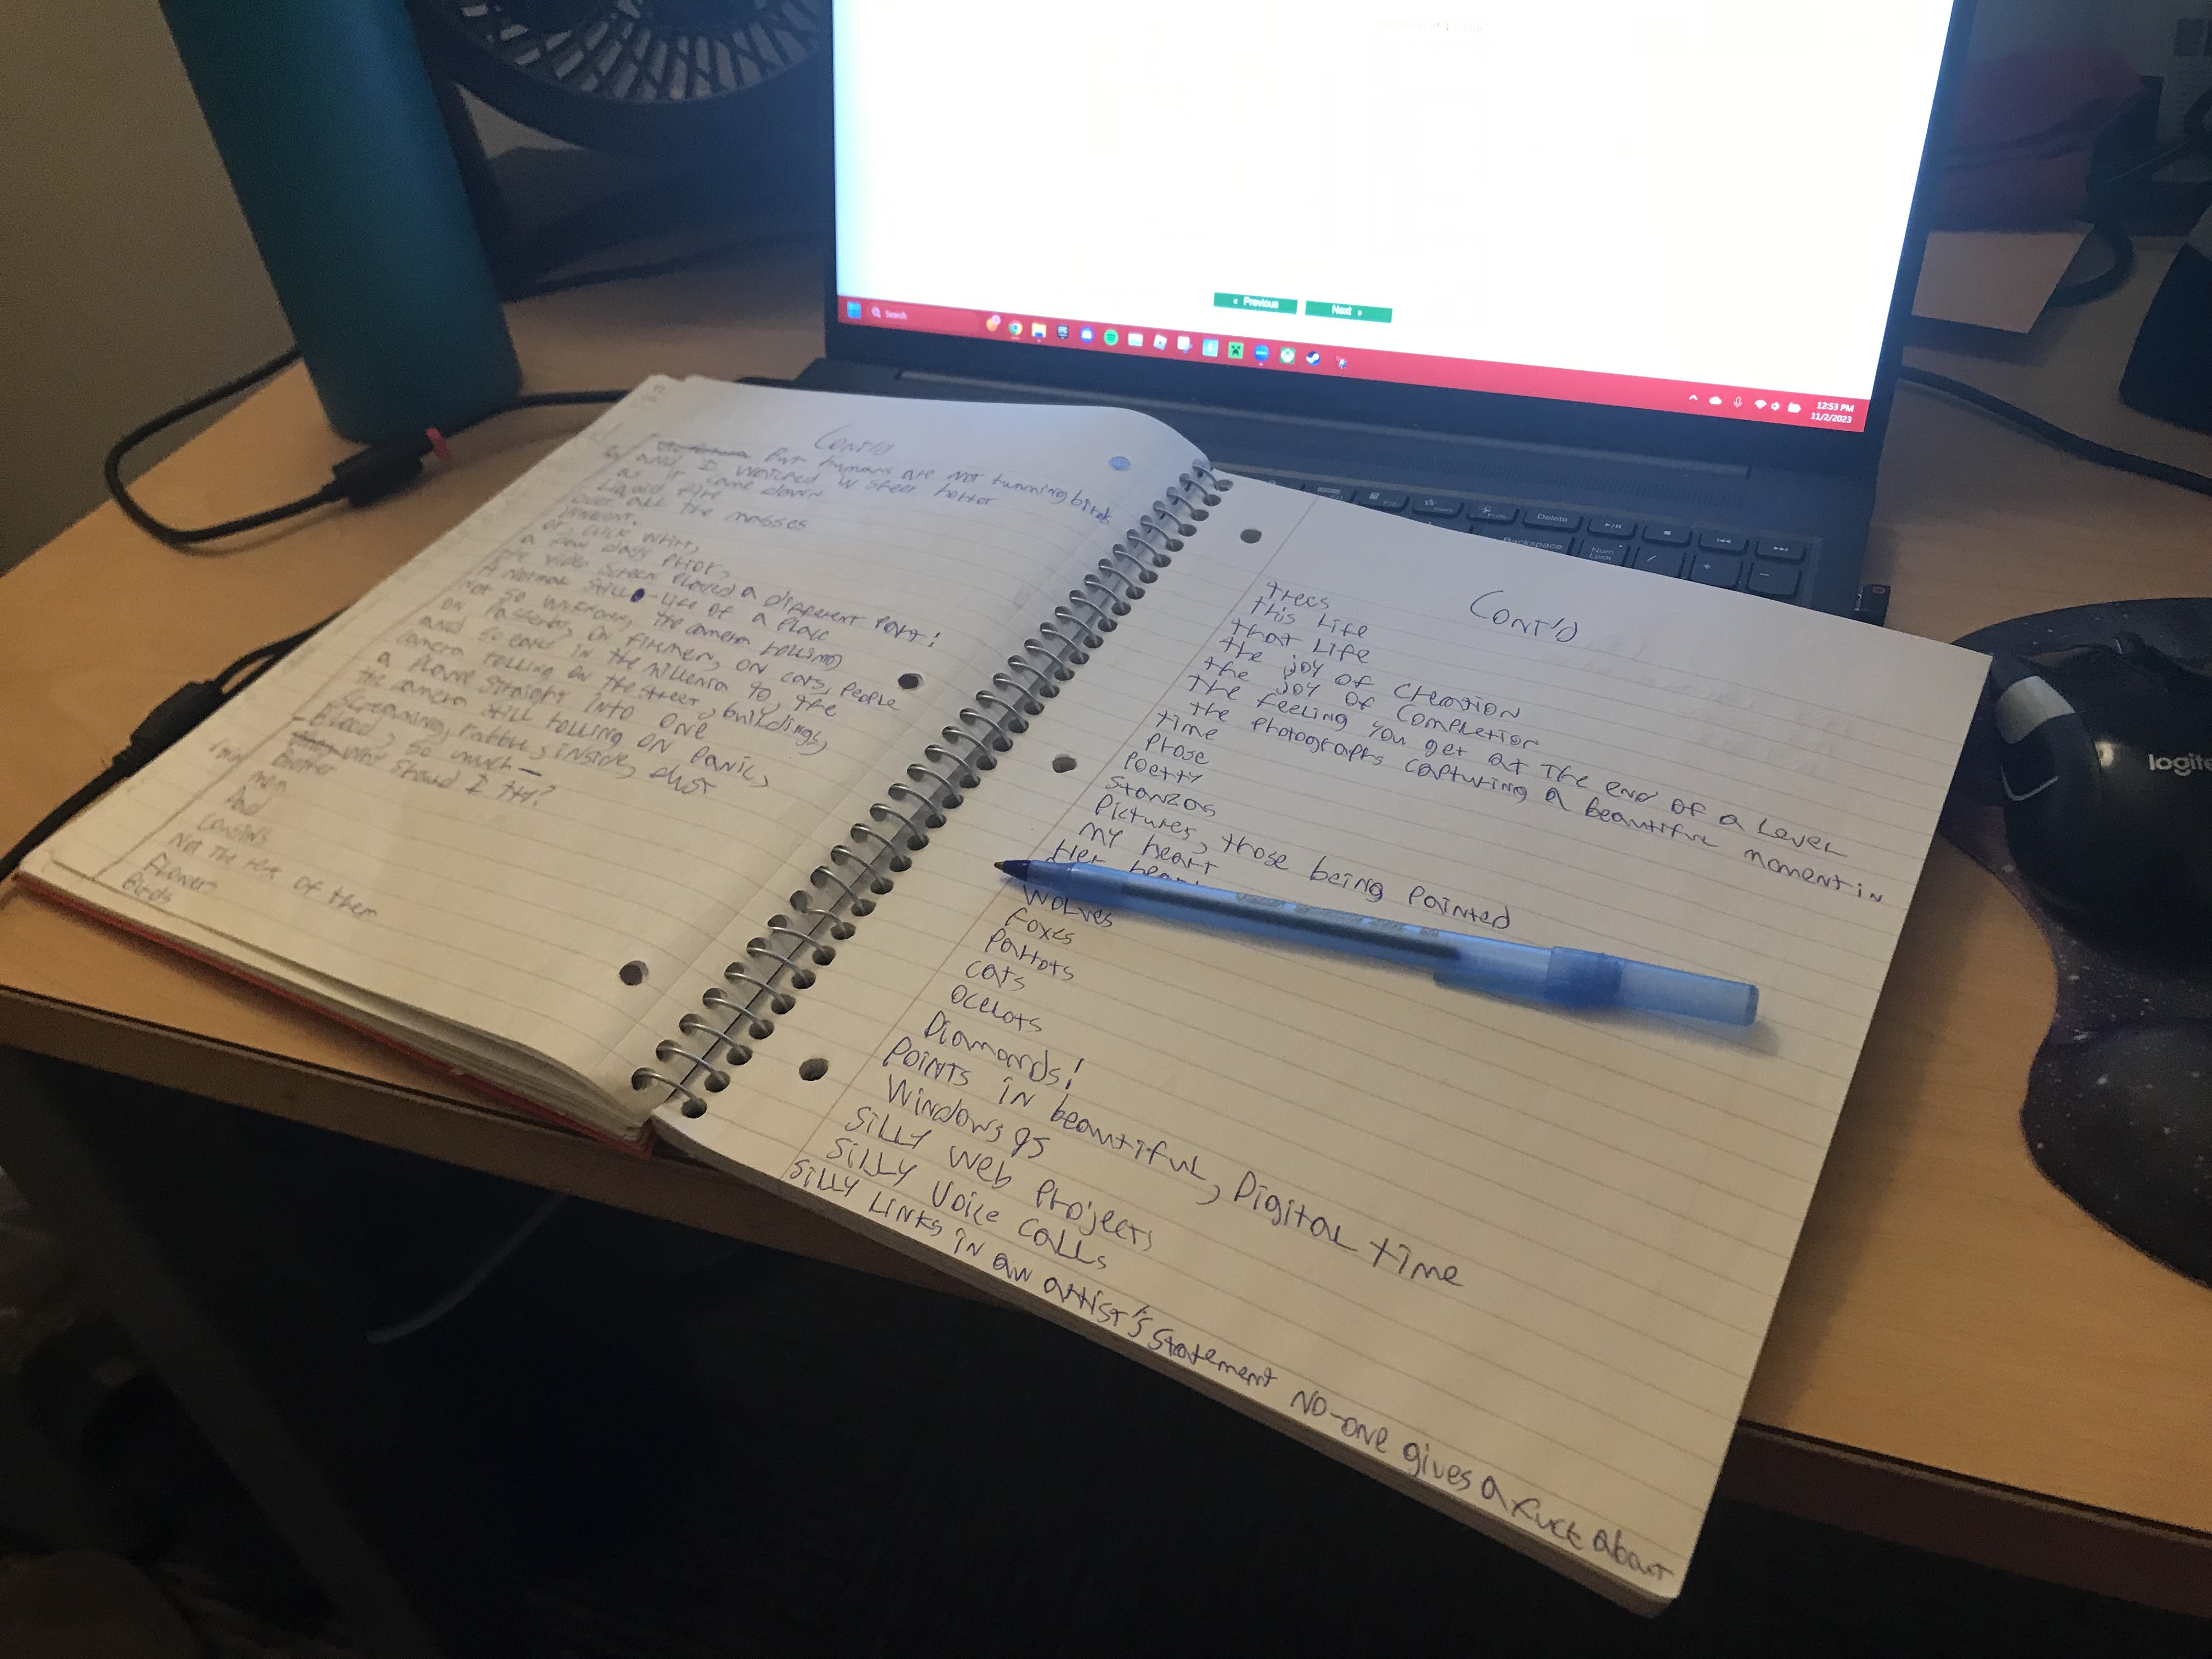 Search
« Previous
Next »
12:53 PM
11/2/2023
Delete
Backspace
Num Lock
logite
CONT'D
But humans are not humming birds
and I watched
as it came down
Liquid fire
over all the masses
or, click whir,
a few days prior,
the video screen played a different part!
A normal still-life of a place
Not so uniform, the camera rolling
on passerby, on firemen, on cars, people
and so early in the millenia to, the
camera rolling on the street, buildings,
a plane straight into one
the camera still rolling on panic,
screaming, rubble, inside, dust
-Blood, so much-
Why should I try?
mom
Dad
cousins
Not the rest of them
Flowers
Birds
CONT'D
trees
this life
that life
the joy of creation
the joy of completion
The feeling you get at the end of a level
the photographs capturing a beautiful moment in
time
prose
poetry
stanzas
pictures, those being painted
my heart
Her
wolves
foxes
parrots
cats
ocelots
Diamonds!
points in beautiful, Digital time
Windows 95
silly web projects
silly voice calls
silly links in an artist's statement no-one gives a fuck about